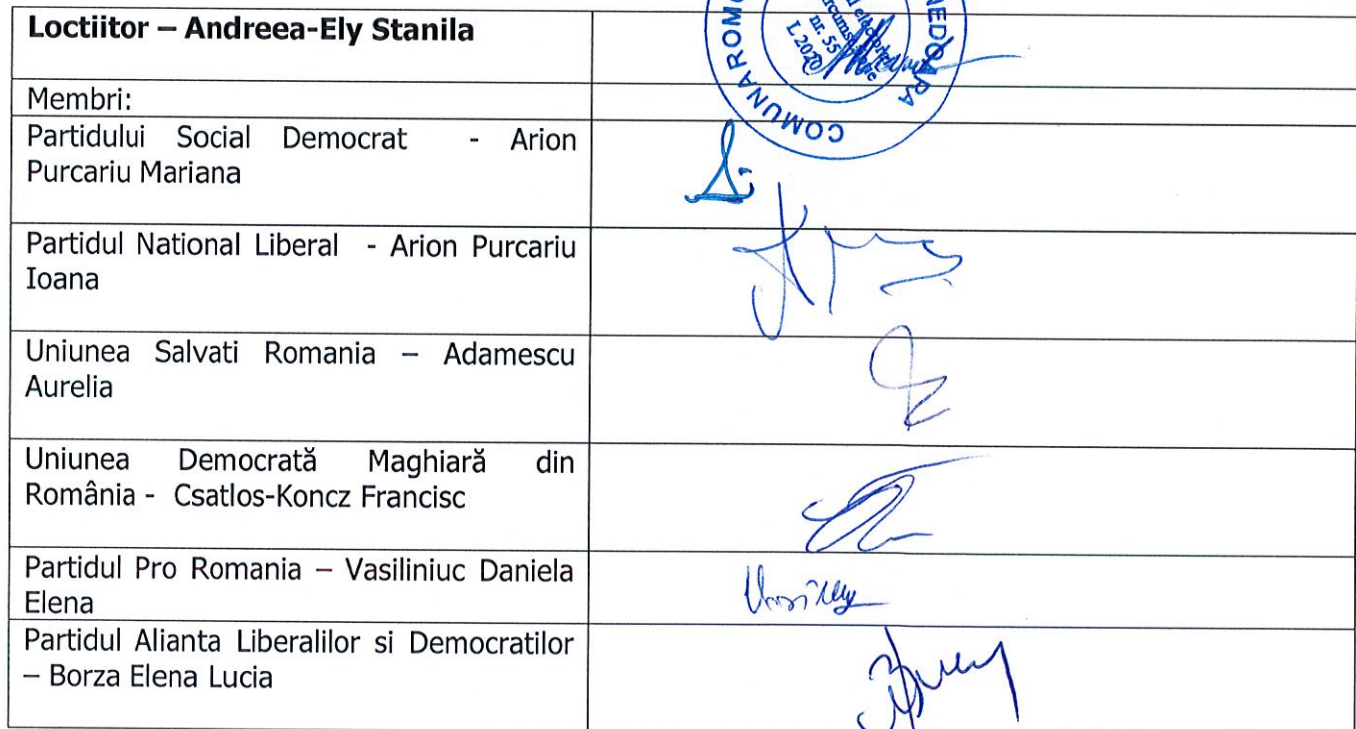 Loctiitor – Andreea-Ely Stanila
Membri:
Partidului Social Democrat - Arion
Purcariu Mariana
Partidul National Liberal - Arion Purcariu
Ioana
Uniunea Salvati Romania – Adamescu
Aurelia
Uniunea Democrată Maghiară din
România - Csatlos-Koncz Francisc
Partidul Pro Romania – Vasiliniuc Daniela
Elena
Partidul Alianta Liberalilor si Democratilor
– Borza Elena Lucia
COMUNA
nr. 55
L 2020